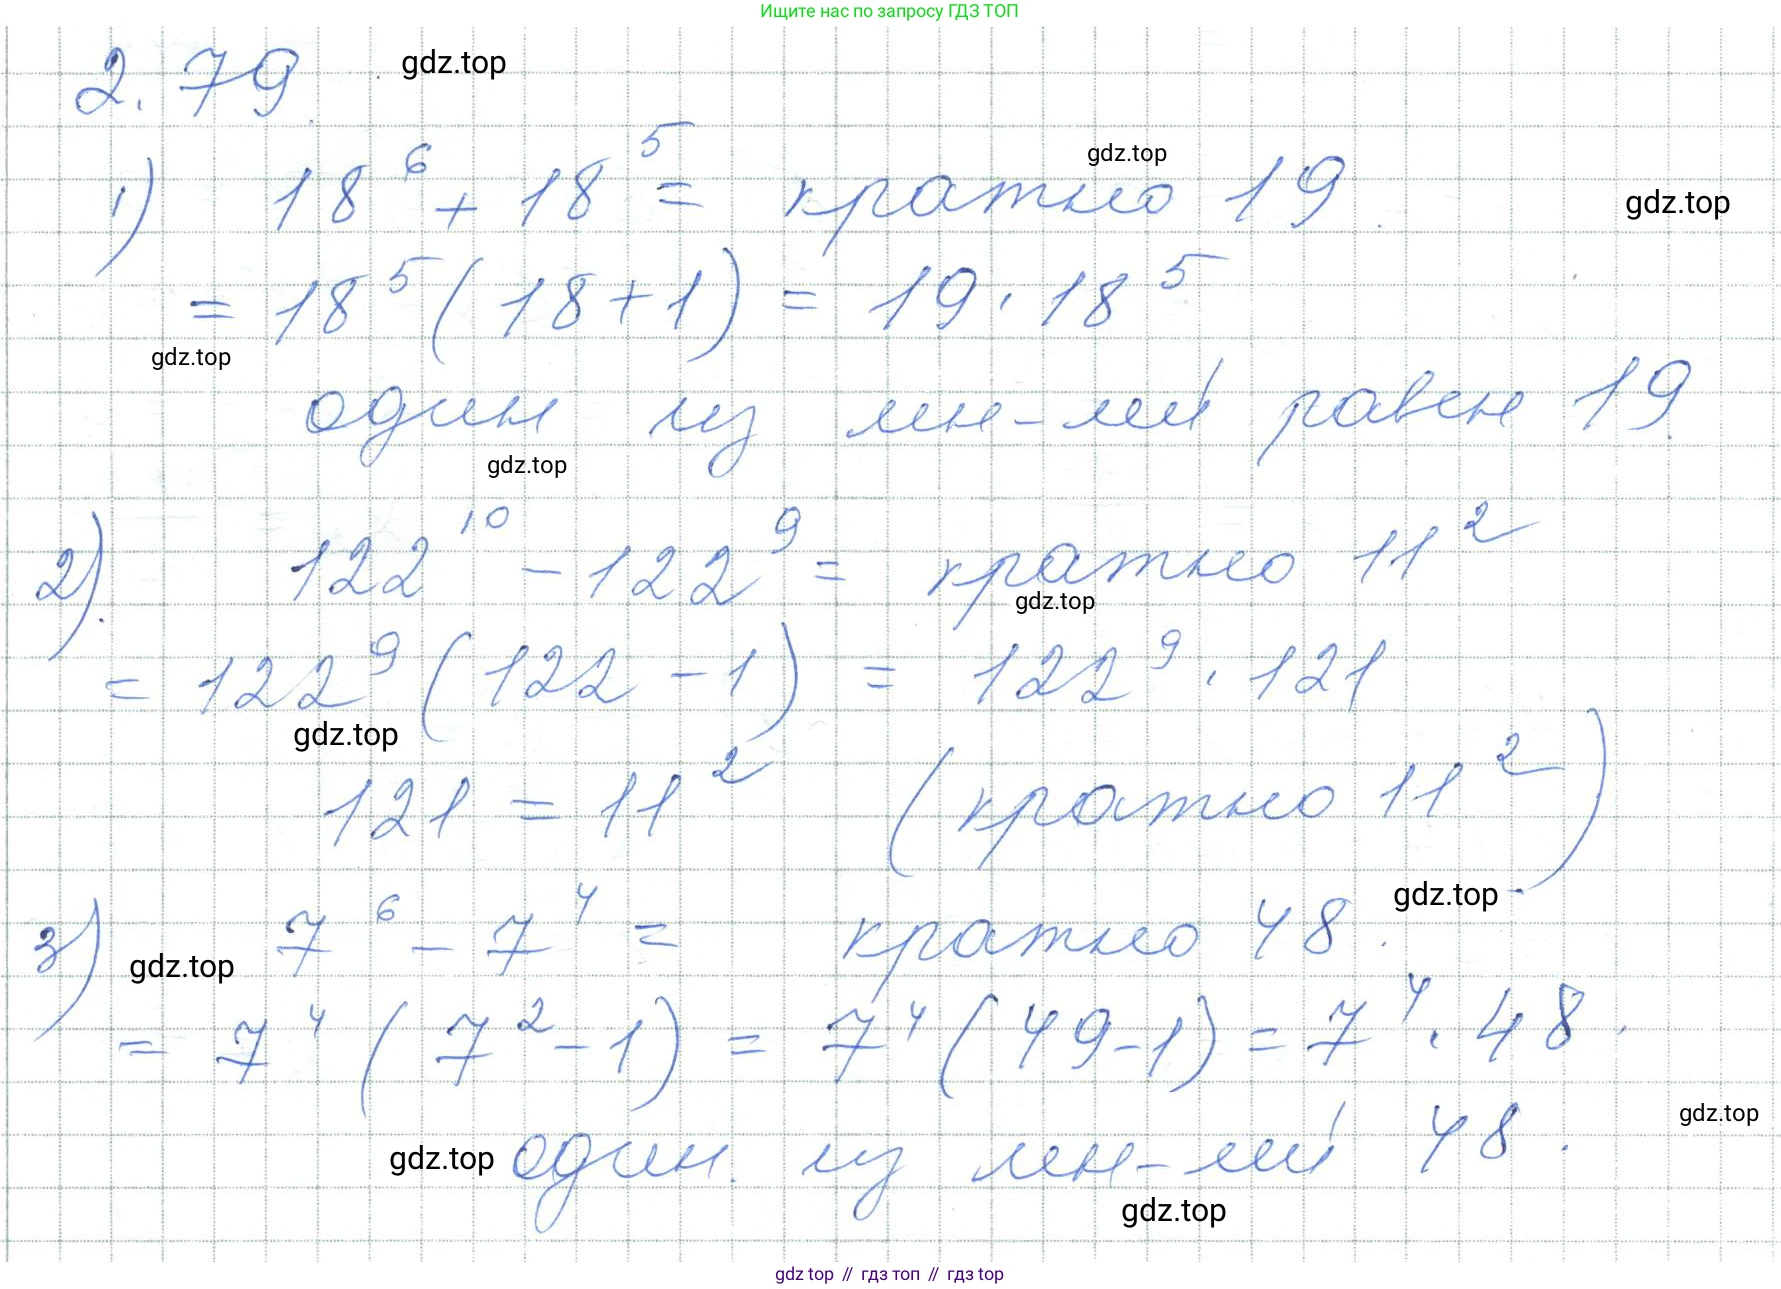 Ищите нас по запросу ГДЗ ТОП
2.79 gdz.top
1) 18⁶ + 18⁵ = кратно 19 gdz.top gdz.top
= 18⁵ (18 + 1) = 19 · 18⁵
gdz.top
один из мн-лей равен 19
gdz.top
2) 122¹⁰ - 122⁹ = кратно 11²
gdz.top
= 122⁹ (122 - 1) = 122⁹ · 121
gdz.top
121 = 11² (кратно 11²)
gdz.top
3) 7⁶ - 7⁴ = кратно 48.
gdz.top
= 7⁴ (7² - 1) = 7⁴ (49 - 1) = 7⁴ · 48.
gdz.top
gdz.top один из мн-лей 48.
gdz.top
gdz top // гдз топ // гдз top